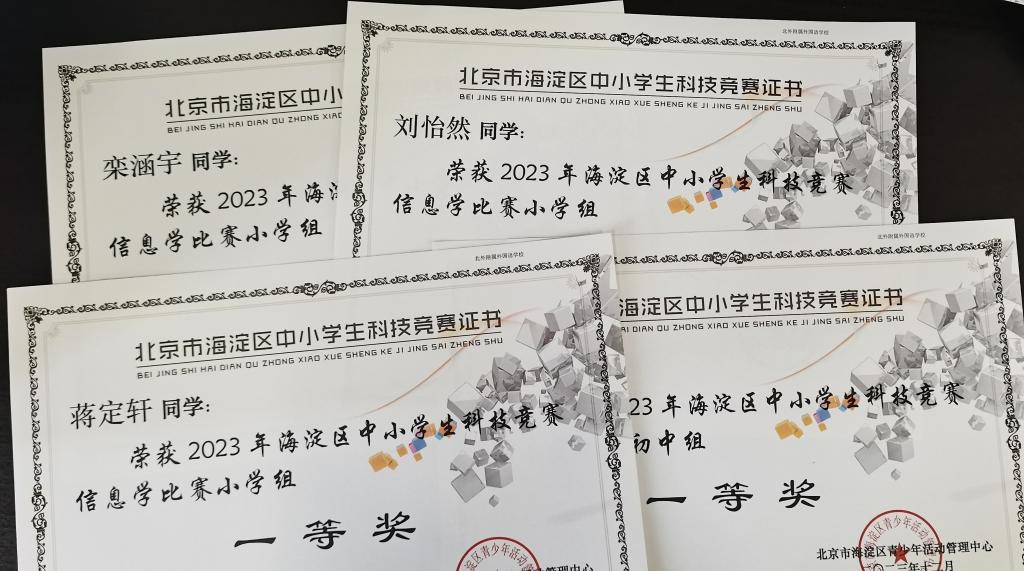 北京市海淀区中小
BEI JING SHI HAI DIAN QU ZHONG XIAO
栾涵宇 同学：
荣获 2023 年海淀
信息学比赛小学组
北外附属外国语学校
北京市海淀区中小学生科技竞赛证书
BEI JING SHI HAI DIAN QU ZHONG XIAO XUE SHENG KE JI JING SAI ZHENG SHU
刘怡然 同学：
荣获 2023 年海淀区中小学生科技竞赛
信息学比赛小学组
北外附属外国语学校
北京市海淀区中小学生科技竞赛证书
BEI JING SHI HAI DIAN QU ZHONG XIAO XUE SHENG KE JI JING SAI ZHENG SHU
蒋定轩 同学：
荣获 2023 年海淀区中小学生科技竞赛
信息学比赛小学组
一等奖
海淀区青少年活动
北外附属外国语学校
海淀区中小学生科技竞赛证书
DIAN QU ZHONG XIAO XUE SHENG KE JI JING SAI ZHENG SHU
23 年海淀区中小学生科技竞赛
初中组
一等奖
海淀区青少年活动管
北京市海淀区青少年活动管理中心